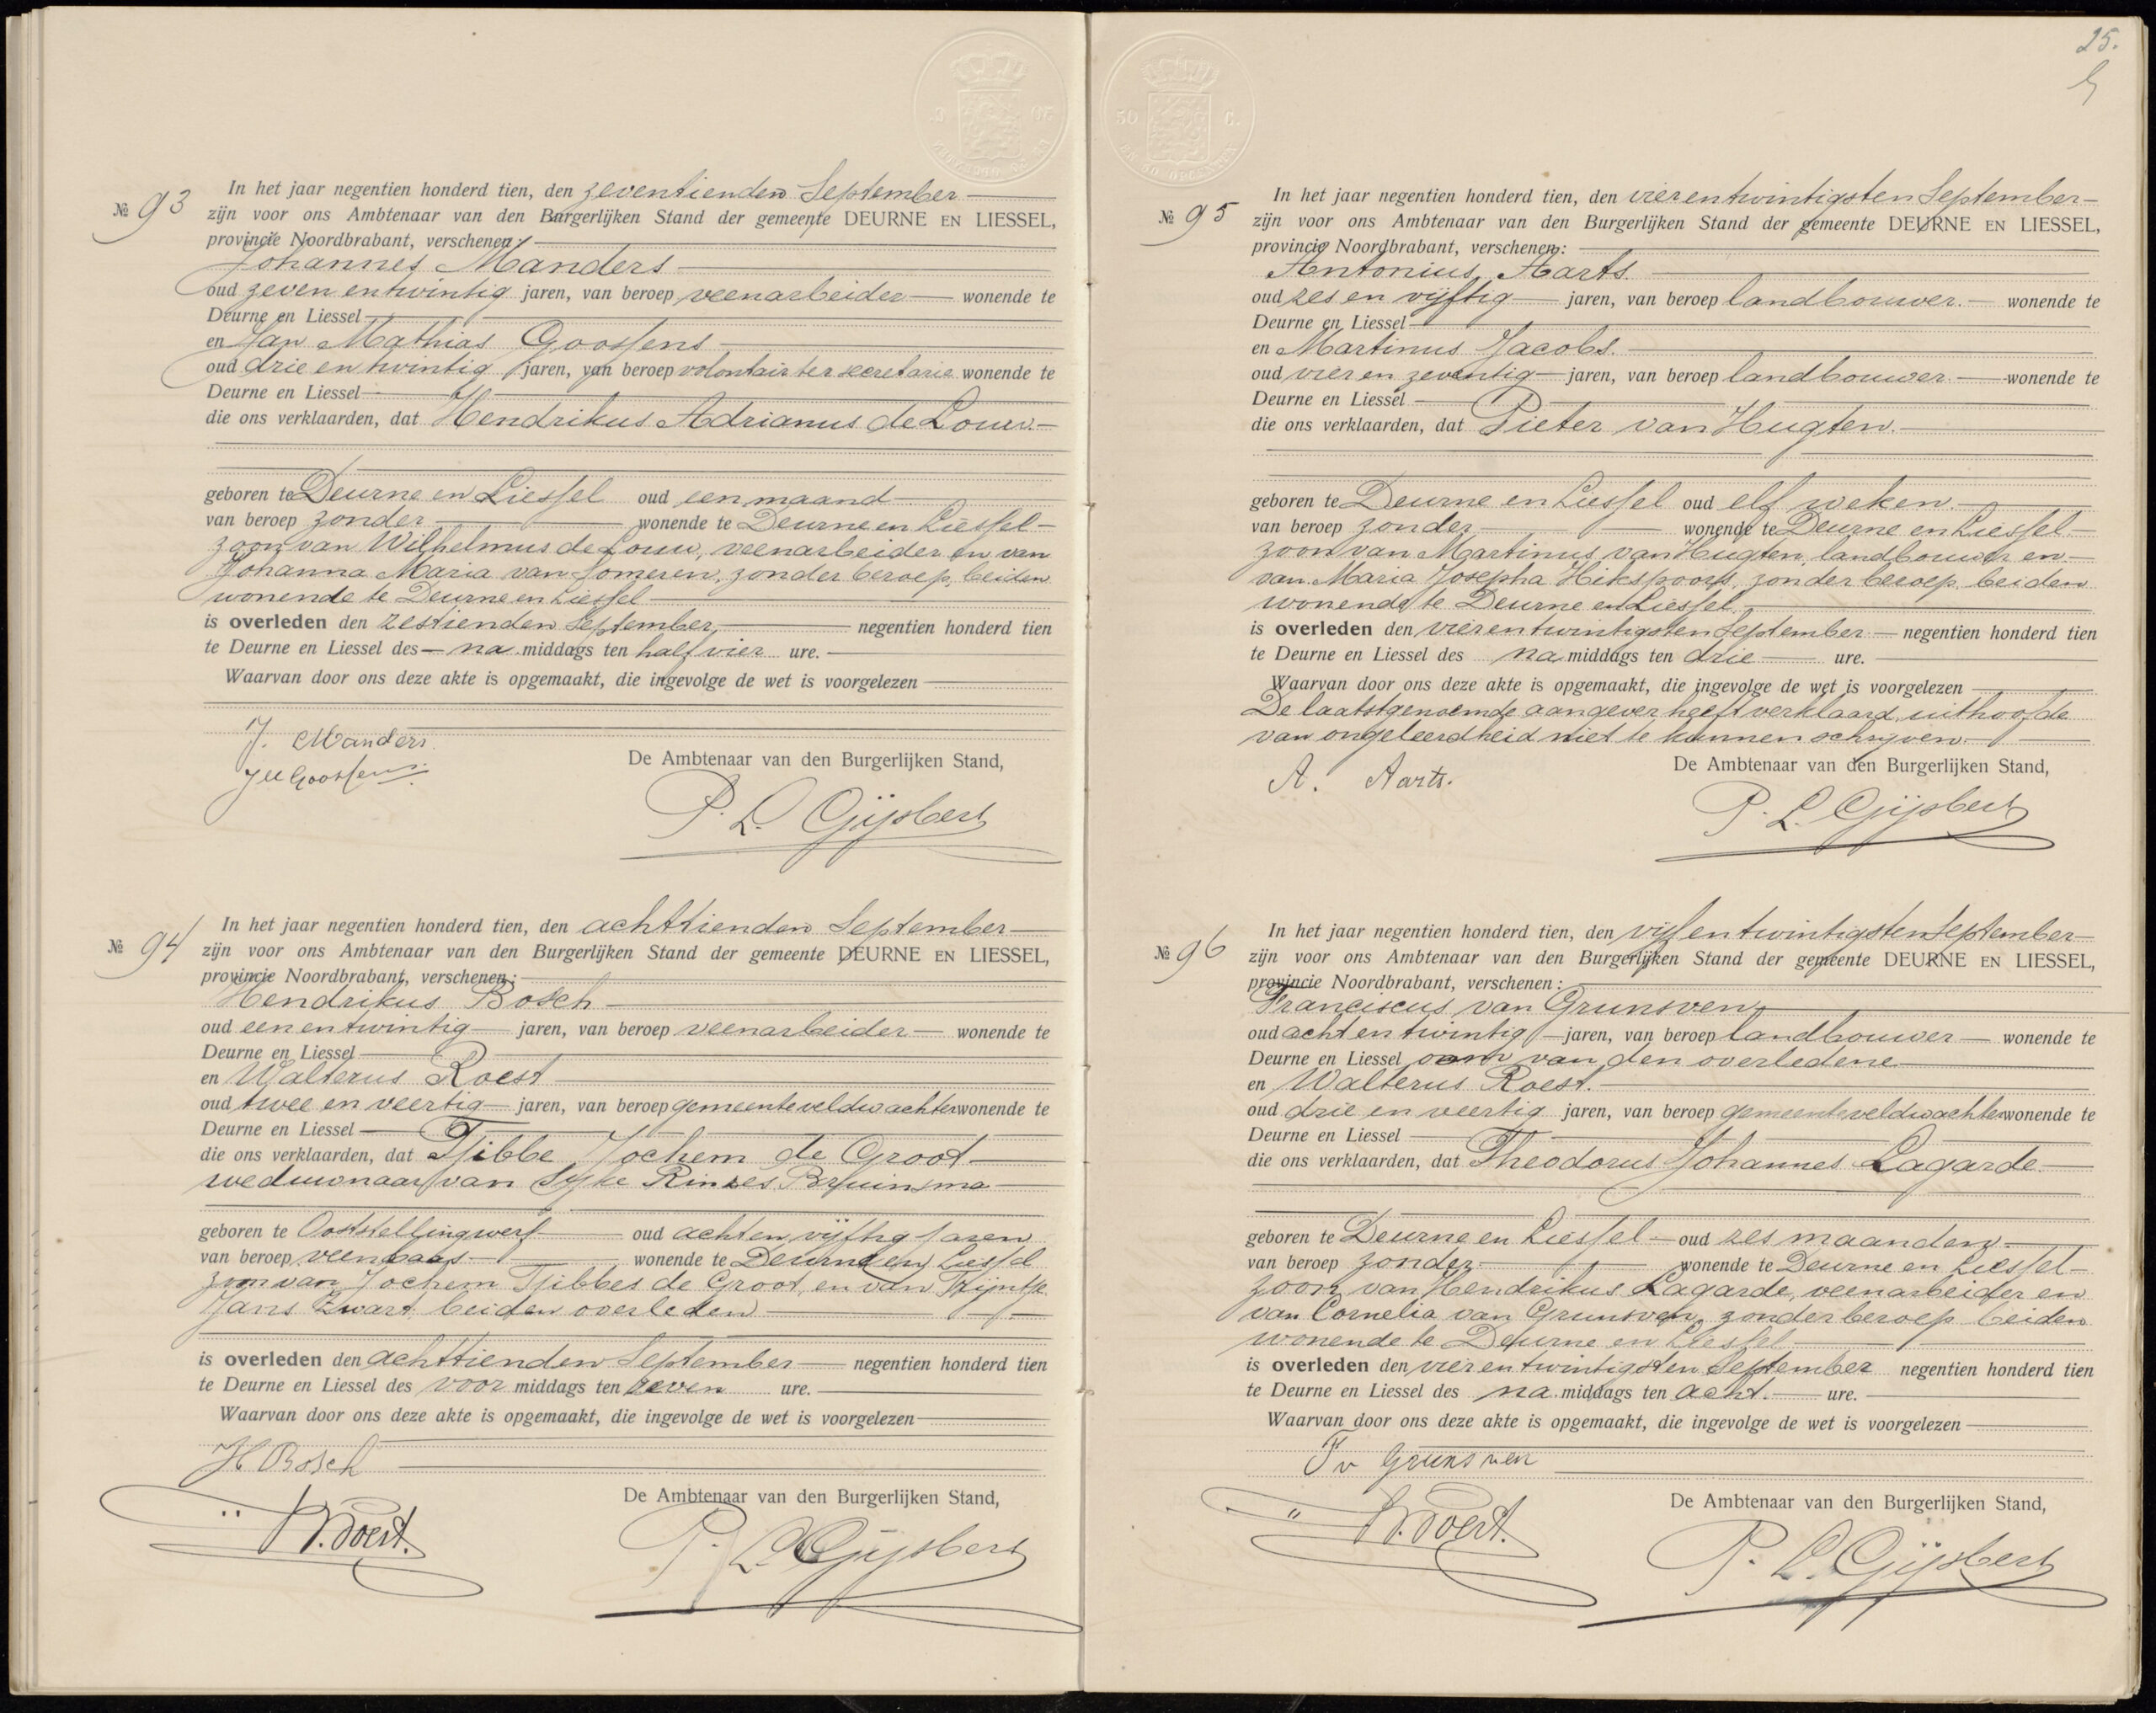 № 93
In het jaar negentien honderd tien, den zeventienden September
zijn voor ons Ambtenaar van den Burgerlijken Stand der gemeente DEURNE EN LIESSEL,
provincie Noordbrabant, verschenen:
Johannes Manders
oud zeven en twintig jaren, van beroep veenarbeider wonende te
Deurne en Liessel
en Jan Mathias Goossens
oud drie en twintig jaren, van beroep volontair ter secretarie wonende te
Deurne en Liessel
die ons verklaarden, dat Hendrikus Adrianus de Louw.
geboren te Deurne en Liessel oud een maand
van beroep zonder wonende te Deurne en Liessel
zoon van Wilhelmus de Louw, veenarbeider en van
Johanna Maria van Someren, zonder beroep, beiden
wonende te Deurne en Liessel
is overleden den zestienden September, negentien honderd tien
te Deurne en Liessel des na middags ten half vier ure.
Waarvan door ons deze akte is opgemaakt, die ingevolge de wet is voorgelezen
J. Manders.
JM Goossens.
De Ambtenaar van den Burgerlijken Stand,
P. L. Gijsbers
№ 94
In het jaar negentien honderd tien, den achttienden September
zijn voor ons Ambtenaar van den Burgerlijken Stand der gemeente DEURNE EN LIESSEL,
provincie Noordbrabant, verschenen:
Hendrikus Bosch
oud een en twintig jaren, van beroep veenarbeider wonende te
Deurne en Liessel
en Walterus Roest
oud twee en veertig jaren, van beroep gemeenteveldwachter wonende te
Deurne en Liessel
die ons verklaarden, dat Tjibbe Jochem de Groot
weduwnaar van Sijke Rinses Bruinsma
geboren te Ooststellingwerf oud acht en vijftig jaren
van beroep veenbaas wonende te Deurne en Liessel
zoon van Jochem Tjibbes de Groot, en van Wijntje
Jans Zwart beiden overleden
is overleden den achttienden September negentien honderd tien
te Deurne en Liessel des voor middags ten zeven ure.
Waarvan door ons deze akte is opgemaakt, die ingevolge de wet is voorgelezen
H Bosch
W. Roest.
De Ambtenaar van den Burgerlijken Stand,
P. L. Gijsbers
25.
№ 95
In het jaar negentien honderd tien, den vier en twintigsten September
zijn voor ons Ambtenaar van den Burgerlijken Stand der gemeente DEURNE EN LIESSEL,
provincie Noordbrabant, verschenen:
Antonius Aarts.
oud zes en vijftig jaren, van beroep landbouwer. wonende te
Deurne en Liessel
en Martinus Jacobs.
oud vier en zeventig jaren, van beroep landbouwer wonende te
Deurne en Liessel
die ons verklaarden, dat Pieter van Hugten.
geboren te Deurne en Liessel oud elf weken.
van beroep zonder wonende te Deurne en Liessel
zoon van Martinus van Hugten, landbouwer en
van Maria Josepha Hikspoors, zonder beroep beiden
wonende te Deurne en Liessel
is overleden den vier en twintigsten September negentien honderd tien
te Deurne en Liessel des na middags ten drie ure.
Waarvan door ons deze akte is opgemaakt, die ingevolge de wet is voorgelezen
De laatstgenoemde aangever heeft verklaard uithoofde
van ongeleerdheid niet te kunnen schrijven.
A. Aarts.
De Ambtenaar van den Burgerlijken Stand,
P. L. Gijsbers
№ 96
In het jaar negentien honderd tien, den vijf en twintigsten September
zijn voor ons Ambtenaar van den Burgerlijken Stand der gemeente DEURNE EN LIESSEL,
provincie Noordbrabant, verschenen:
Franciscus van Grunsven,
oud acht en twintig jaren, van beroep landbouwer wonende te
Deurne en Liessel oom van den overledene
en Walterus Roest.
oud drie en veertig jaren, van beroep gemeenteveldwachter wonende te
Deurne en Liessel
die ons verklaarden, dat Theodorus Johannes Lagarde.
geboren te Deurne en Liessel oud zes maanden.
van beroep zonder wonende te Deurne en Liessel
zoon van Hendrikus Lagarde, veenarbeider en
van Cornelia van Grunsven, zonder beroep beiden
wonende te Deurne en Liessel
is overleden den vier en twintigsten September negentien honderd tien
te Deurne en Liessel des na middags ten acht. ure.
Waarvan door ons deze akte is opgemaakt, die ingevolge de wet is voorgelezen
F v Grunsven
W. Roest.
De Ambtenaar van den Burgerlijken Stand,
P. L. Gijsbers